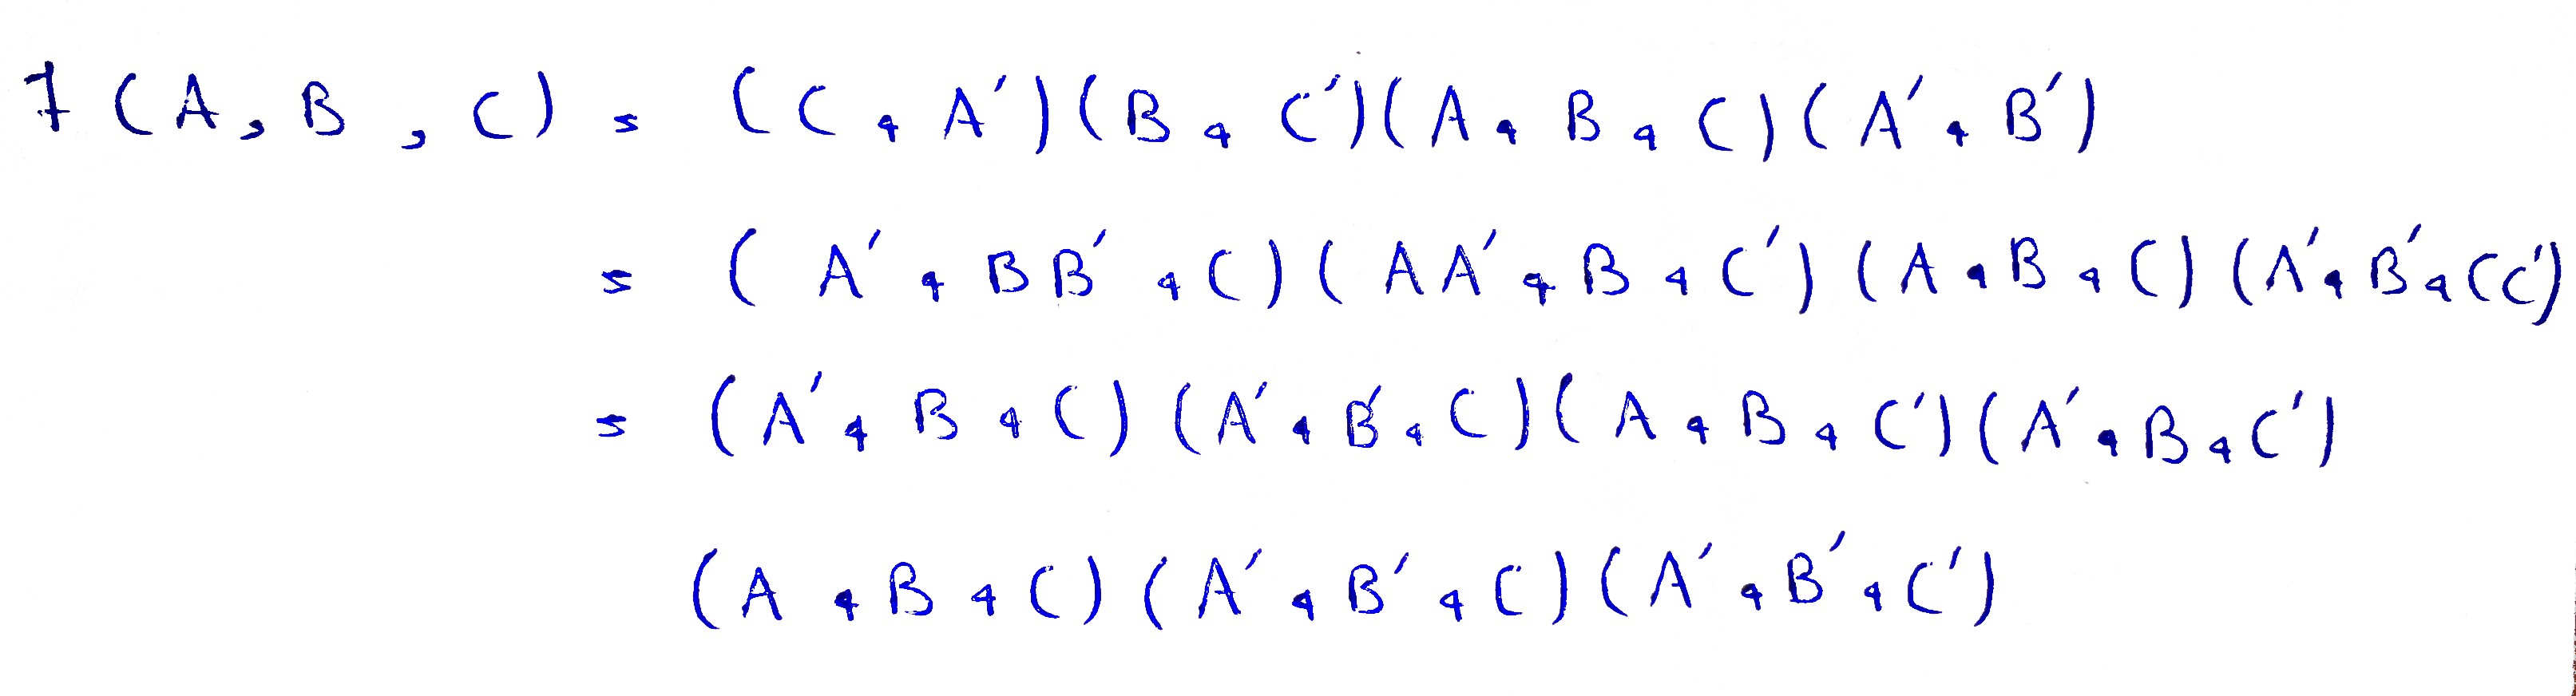 F (A, B, C) = (C + A')(B + C')(A + B + C)(A' + B')
= (A' + BB' + C)(AA' + B + C')(A + B + C)(A' + B' + CC')
= (A' + B + C)(A' + B' + C)(A + B + C')(A' + B + C')
(A + B + C)(A' + B' + C)(A' + B' + C')